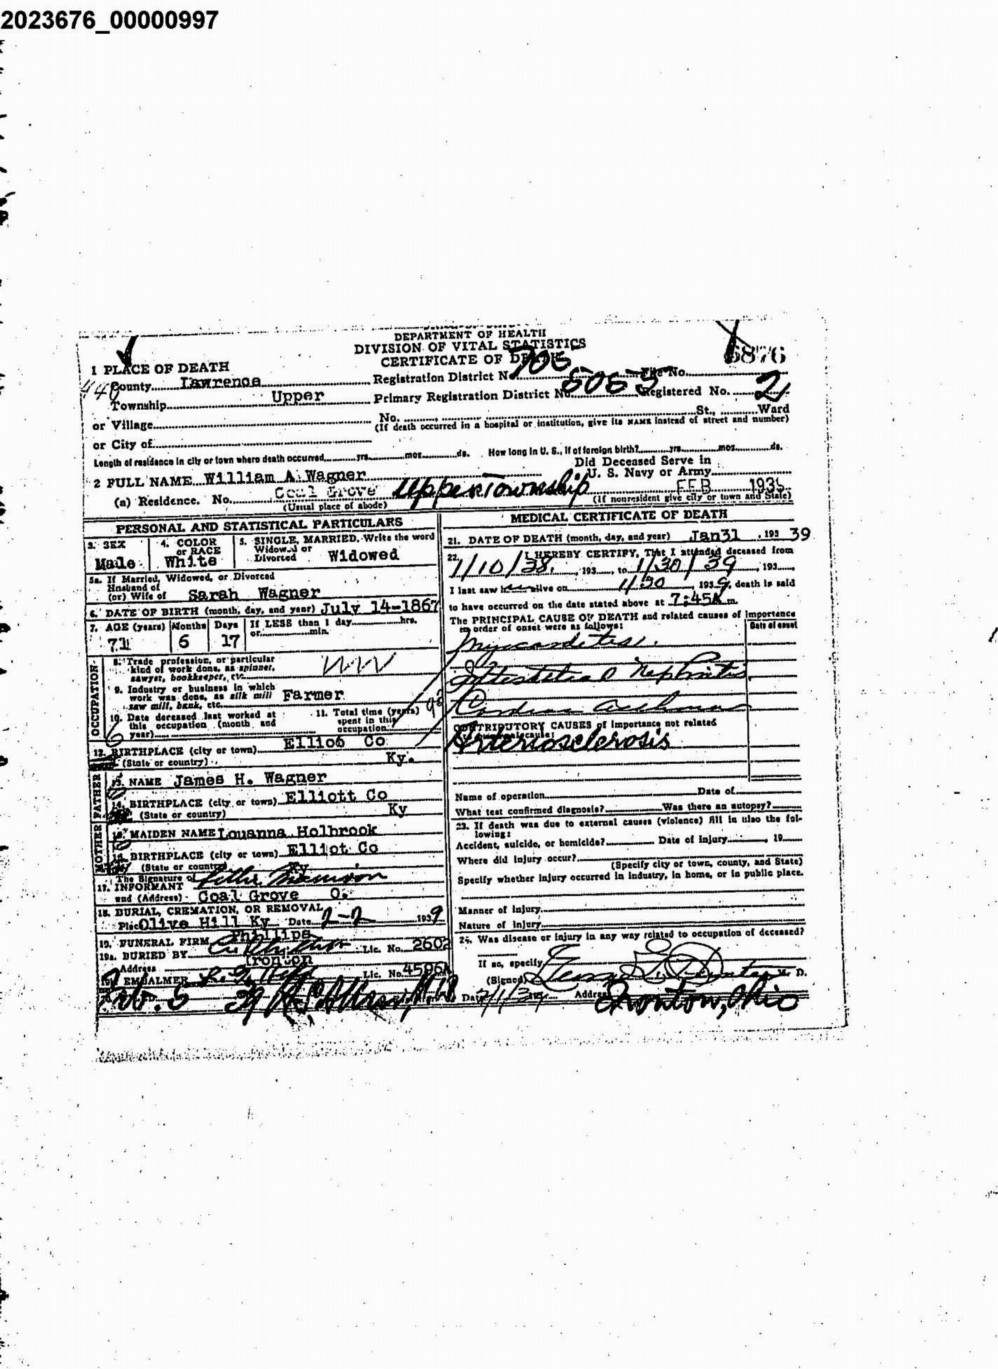 2023676_00000997
DEPARTMENT OF HEALTH
DIVISION OF VITAL STATISTICS
CERTIFICATE OF DEATH
6876
1 PLACE OF DEATH
County Lawrence
Registration District No. 705 File No.
Township Upper
Primary Registration District No. Registered No. 2
or Village
No. St., Ward
(If death occurred in a hospital or institution, give its NAME instead of street and number)
or City of
Length of residence in city or town where death occurred yrs. mos. ds. How long in U. S., if of foreign birth? yrs. mos. ds.
Did Deceased Serve in
U. S. Navy or Army
2 FULL NAME William A. Wagner
FEB 193
(a) Residence. No. Coal Grove Upper Township
(Usual place of abode) (If nonresident give city or town and State)
PERSONAL AND STATISTICAL PARTICULARS
3. SEX Male
4. COLOR or RACE White
5. SINGLE, MARRIED, Write the word
Widowed or Divorced Widowed
5a. If Married, Widowed, or Divorced
Husband of
(or) Wife of Sarah Wagner
6. DATE OF BIRTH (month, day, and year) July 14-1867
7. AGE (years) Months Days If LESS than 1 day hrs.
or min.
71 6 17
OCCUPATION
8. Trade profession, or particular
kind of work done, as spinner,
sawyer, bookkeeper, etc.
9. Industry or business in which
work was done, as silk mill
saw mill, bank, etc. Farmer
10. Date deceased last worked at
this occupation (month and
year)
11. Total time (years)
spent in this
occupation
12. BIRTHPLACE (city or town) Elliob Co
(State or country) Ky.
FATHER
13. NAME James H. Wagner
14. BIRTHPLACE (city or town) Elliott Co
(State or country) Ky
MOTHER
15. MAIDEN NAME Louanna Holbrook
16. BIRTHPLACE (city or town) Elliot Co
(State or country) Ky
The Signature of
17. INFORMANT
and (Address) Coal Grove O.
18. BURIAL, CREMATION, OR REMOVAL
Place Olive Hill Ky Date 2-2 1939
19. FUNERAL FIRM Phillips
19a. BURIED BY Lic. No. 2602
Address Ironton
EMBALMER Lic. No. 4596A
MEDICAL CERTIFICATE OF DEATH
21. DATE OF DEATH (month, day, and year) Jan 31, 193 39
22. I HEREBY CERTIFY, That I attended deceased from
1/10/38, 193 to 1/30/39, 193
I last saw alive on 1/30 1939, death is said
to have occurred on the date stated above at 7:45A m.
The PRINCIPAL CAUSE OF DEATH and related causes of importance
in order of onset were as follows:
Date of onset
Myocarditis
Interstitial Nephritis
Cardiac Asthma
CONTRIBUTORY CAUSES of importance not related
to principal cause:
Arteriosclerosis
Name of operation Date of
What test confirmed diagnosis? Was there an autopsy?
23. If death was due to external causes (violence) fill in also the fol-
lowing:
Accident, suicide, or homicide? Date of injury 19
Where did injury occur?
(Specify city or town, county, and State)
Specify whether injury occurred in industry, in home, or in public place.
Manner of injury
Nature of injury
24. Was disease or injury in any way related to occupation of deceased?
If so, specify
(Signed) M. D.
Date 2/1/39 Address Ironton, Ohio